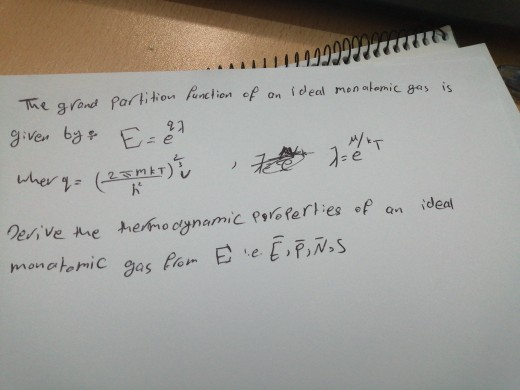 The grand partition function of an ideal monatomic gas is
given by: Ξ = e^{qλ}
wher q = (2πmkT/h²)^{3/2} V , λ = e^{μ/kT}
Derive the thermodynamic properties of an ideal
monatomic gas from Ξ i.e. Ē, P̄, N̄, S